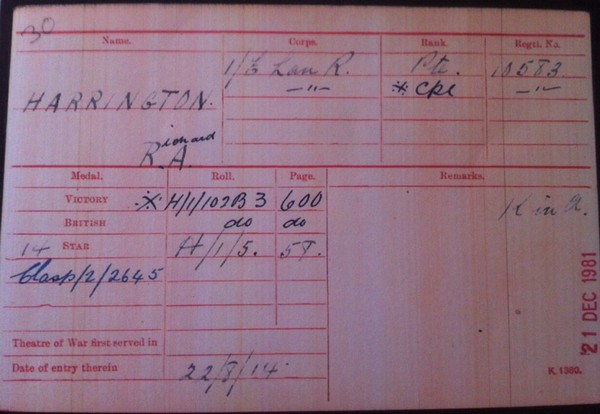 30
Name. Corps. Rank. Regtl. No.
1/E Lan R. Pte. 10583.
HARRINGTON. —"— ※ Cpl —"—
Richard
R.A.
Medal. Roll. Page. Remarks.
VICTORY ※ H/1/102B3 600
BRITISH do do K in A.
14 STAR H/1/5. 57.
Clasp/2/2645
Theatre of War first served in
Date of entry therein 22/8/14.
K. 1380.
21 DEC 1981